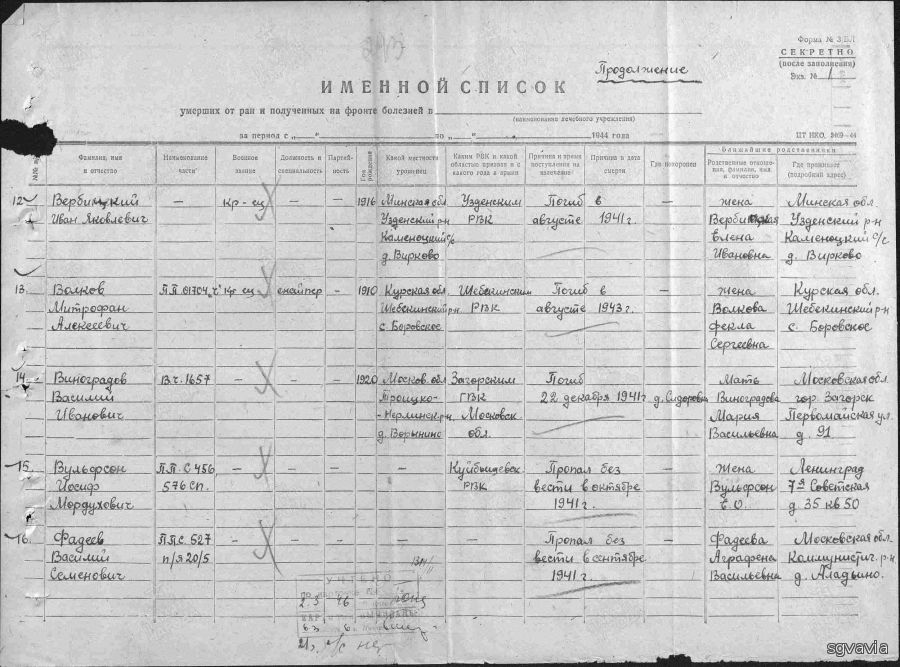 Форма № 3/БЛ
СЕКРЕТНО
(после заполнения)
Экз. № 1
Продолжение
ИМЕННОЙ СПИСОК
умерших от ран и полученных на фронте болезней в
(наименование лечебного учреждения)
за период с „ “ по „ “ 1944 года
ЦТ НКО.
№№
Фамилия, имя и отчество
Наименование части
Военное звание
Должность и специальность
Партийность
Год рождения
Какой местности уроженец
Каким РВК и какой областью призван и с какого года в армии
Причина и время поступления на излечение
Причина и дата смерти
Где похоронен
ближайшие родственники
Родственные отношения, фамилия, имя и отчество
Где проживает (подробный адрес)
12. Вербицкий — кр-ец — — 1916 Минская обл. Узденским Погиб в — жена Минская обл
Иван Яковлевич Узденский р-н РВК августе 1941 г. Вербицкая Узденский р-н
Каменоцкий с/с Елена Каменоцкий с/с
д. Вирково Ивановна д. Вирково
13. Волков П.П. 01704 „Ч" Кр ец снайпер — 1910 Курская обл. Шебекинским Погиб в — жена Курская обл.
Митрофан Шебекинский р-н РВК августе 1943 г. Волкова Шебекинский р-н
Алексеевич с. Боровское Фекла с. Боровское
Сергеевна
14. Виноградов В.ч. 1657 — — — 1920 Москов. обл Загорским Погиб Мать Московская обл
Василий Троицко- ГВК 22 декабря 1941 г. д. Сидоровка Виноградова гор. Загорск
Иванович р-н Московск. Мария Первомайская ул.
д. Ворынино обл. Васильевна д. 91
15. Вульфсон П.П. С 456 — — — — — Куйбышевск. Пропал без — жена Ленинград
Иосиф 576 сп. РВК вести в октябре Вульфсон 7я Советская
Мордухович 1941 г. Е.О. д. 35 кв 50
16. Фадеев П.П.С. 527 — — — — — — Пропал без — Фадеева Московская обл.
Василий п/я 20/5 вести в сентябре Аграфена Коммунистич. р-н
Семенович 1941 г. Васильевна д. Аладьино.
УЧТЕНО
sgvavia